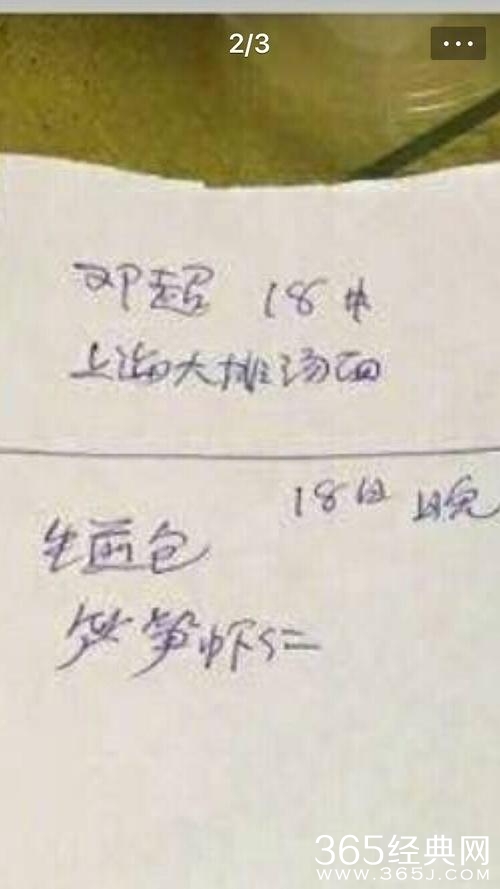 2/3
邓超 18中
上海大排汤面
18日 晚
生煎包
笋虾仁
365经典网
WWW.365J.COM